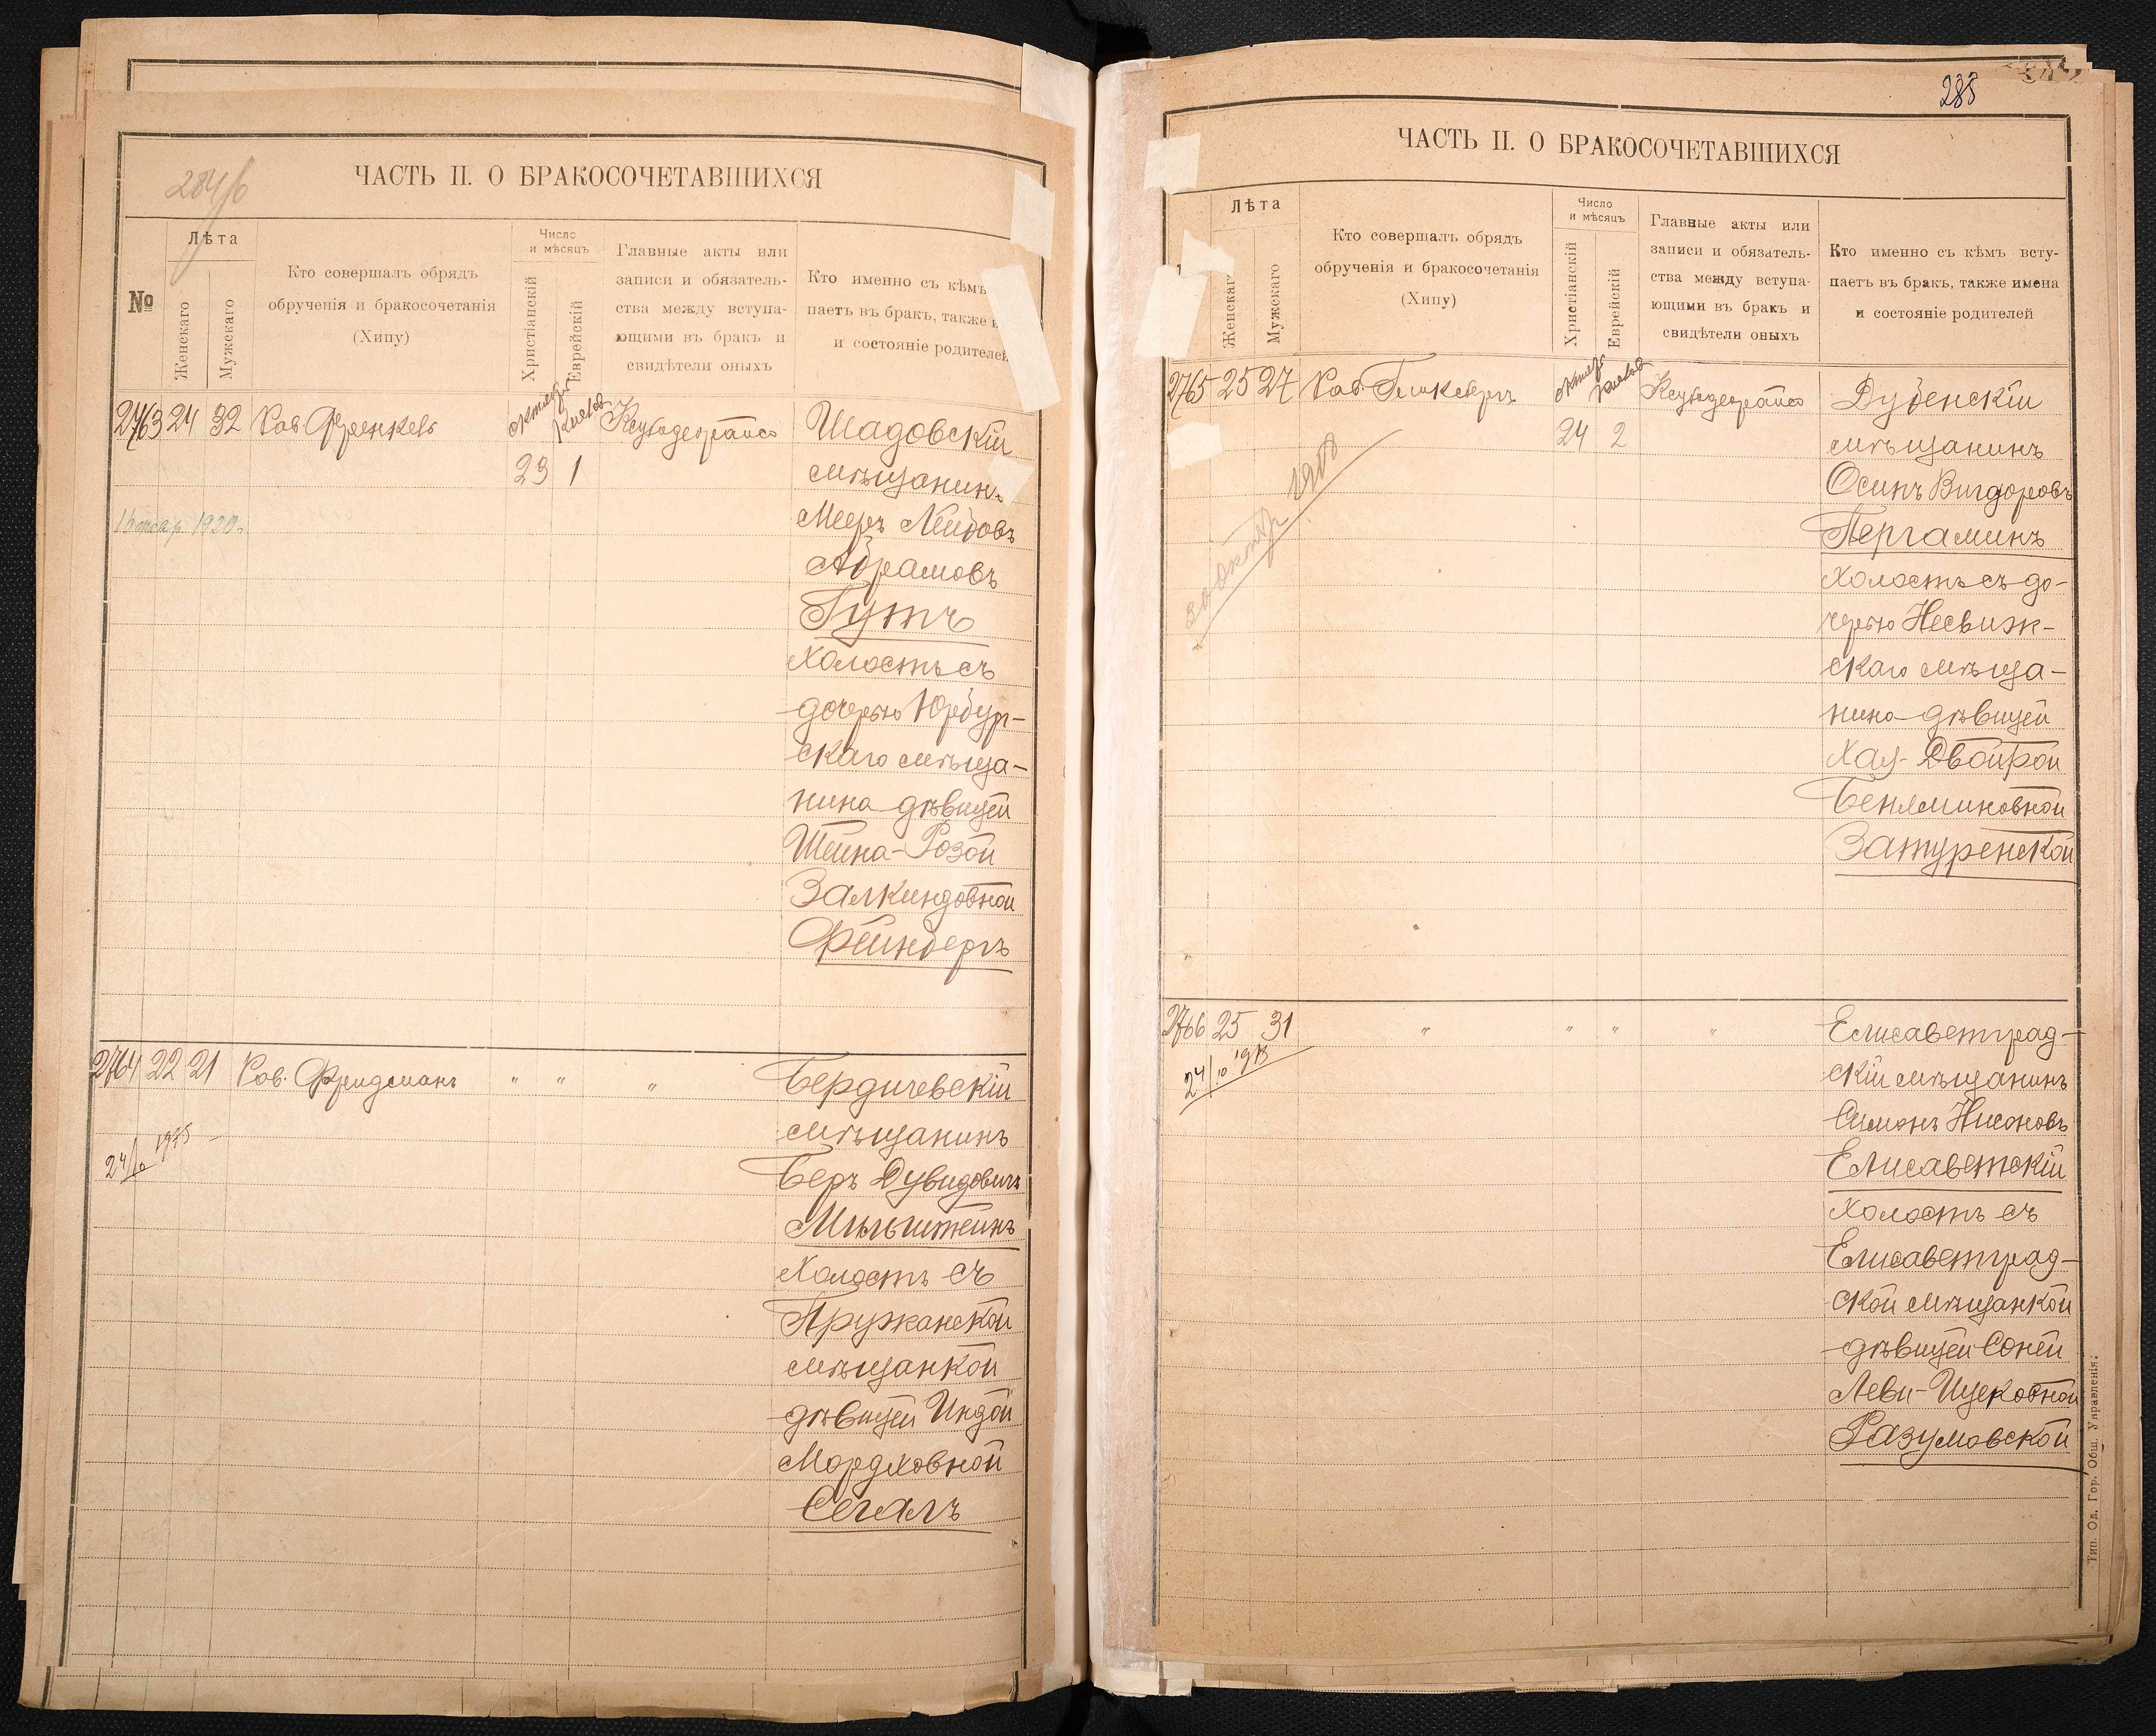 284/б
ЧАСТЬ II. О БРАКОСОЧЕТАВШИХСЯ
№
Лѣта
Женскаго
Мужскаго
Кто совершалъ обрядъ
обрученія и бракосочетанія
(Хипу)
Число
и мѣсяцъ
Христіанскій
Еврейскій
Главные акты или
записи и обязатель-
ства между вступа-
ющими въ бракъ и
свидѣтели оныхъ
Кто именно съ кѣмъ
паетъ въ бракъ, также и
и состояніе родителей
2763 24 32 Рав. Френкель
октября
23 1
Шадовскій
мѣщанинъ
Мееръ Лейбовъ
Абрамовъ
Гутъ
холостъ съ
дочерью Юрбург-
скаго мѣща-
нина дѣвицей
Шейна-Розой
Залкиндовной
Фейнбергъ
1920
2764 22 21 Рав. Фридманъ " " "
Бердичевскій
мѣщанинъ
Беръ Дувидовичъ
Мильштейнъ
холостъ съ
Пружанской
мѣщанкой
дѣвицей Индой
Мордковной
Сегалъ
285
ЧАСТЬ II. О БРАКОСОЧЕТАВШИХСЯ
Лѣта
Женскаг
Мужскаго
Кто совершалъ обрядъ
обрученія и бракосочетанія
(Хипу)
Число
и мѣсяцъ
Христіанскій
Еврейскій
Главные акты или
записи и обязатель-
ства между вступа-
ющими въ бракъ и
свидѣтели оныхъ
Кто именно съ кѣмъ всту-
паетъ въ бракъ, также имена
и состояніе родителей
2765 25 27 Рав.
24 2
Дубенскій
мѣщанинъ
Осипъ Вигдоровъ
Пергаминъ
холостъ съ до-
черью Несвиж-
скаго мѣща-
нина дѣвицей
Хая-Двойрой
Беняминовной
Затуренской
2766 25 31 " " " "
24/10
Елисаветград-
скій мѣщанинъ
Симонъ Нисоновъ
Елисаветскій
холостъ съ
Елисаветград-
ской мѣщанкой
дѣвицей Соней
Леви-Ицековной
Разумовской
Тип. Од. Гор. Общ. Управленія.